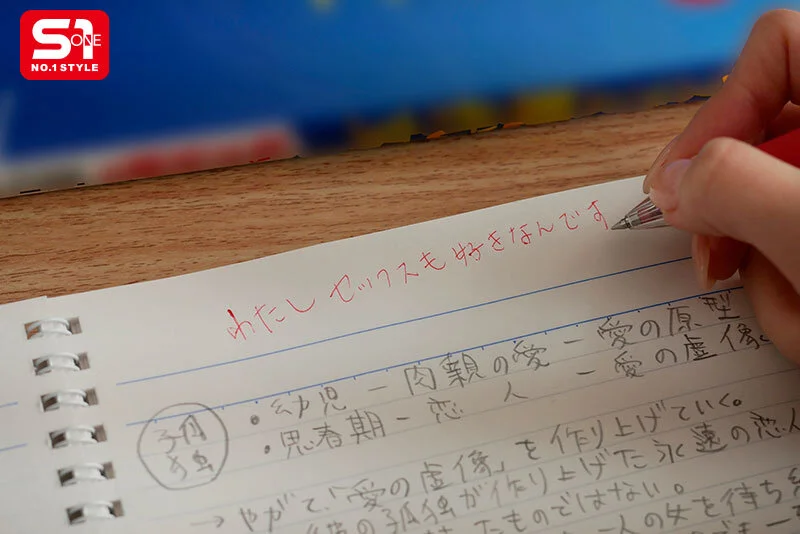 S1
ONE
NO.1 STYLE
わたし セックスも 好きなんです
孤独
・幼児 ー 肉親の愛 ー 愛の原型
・思春期 ー 恋 人 ー 愛の虚像。
→ やがて、「愛の虚像」を作り上げていく。
の孤独が作り上げた永遠の恋人
たものではない。
一人の女を待ち